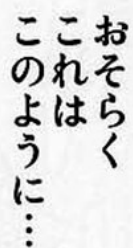 おそらく
これは
このように…